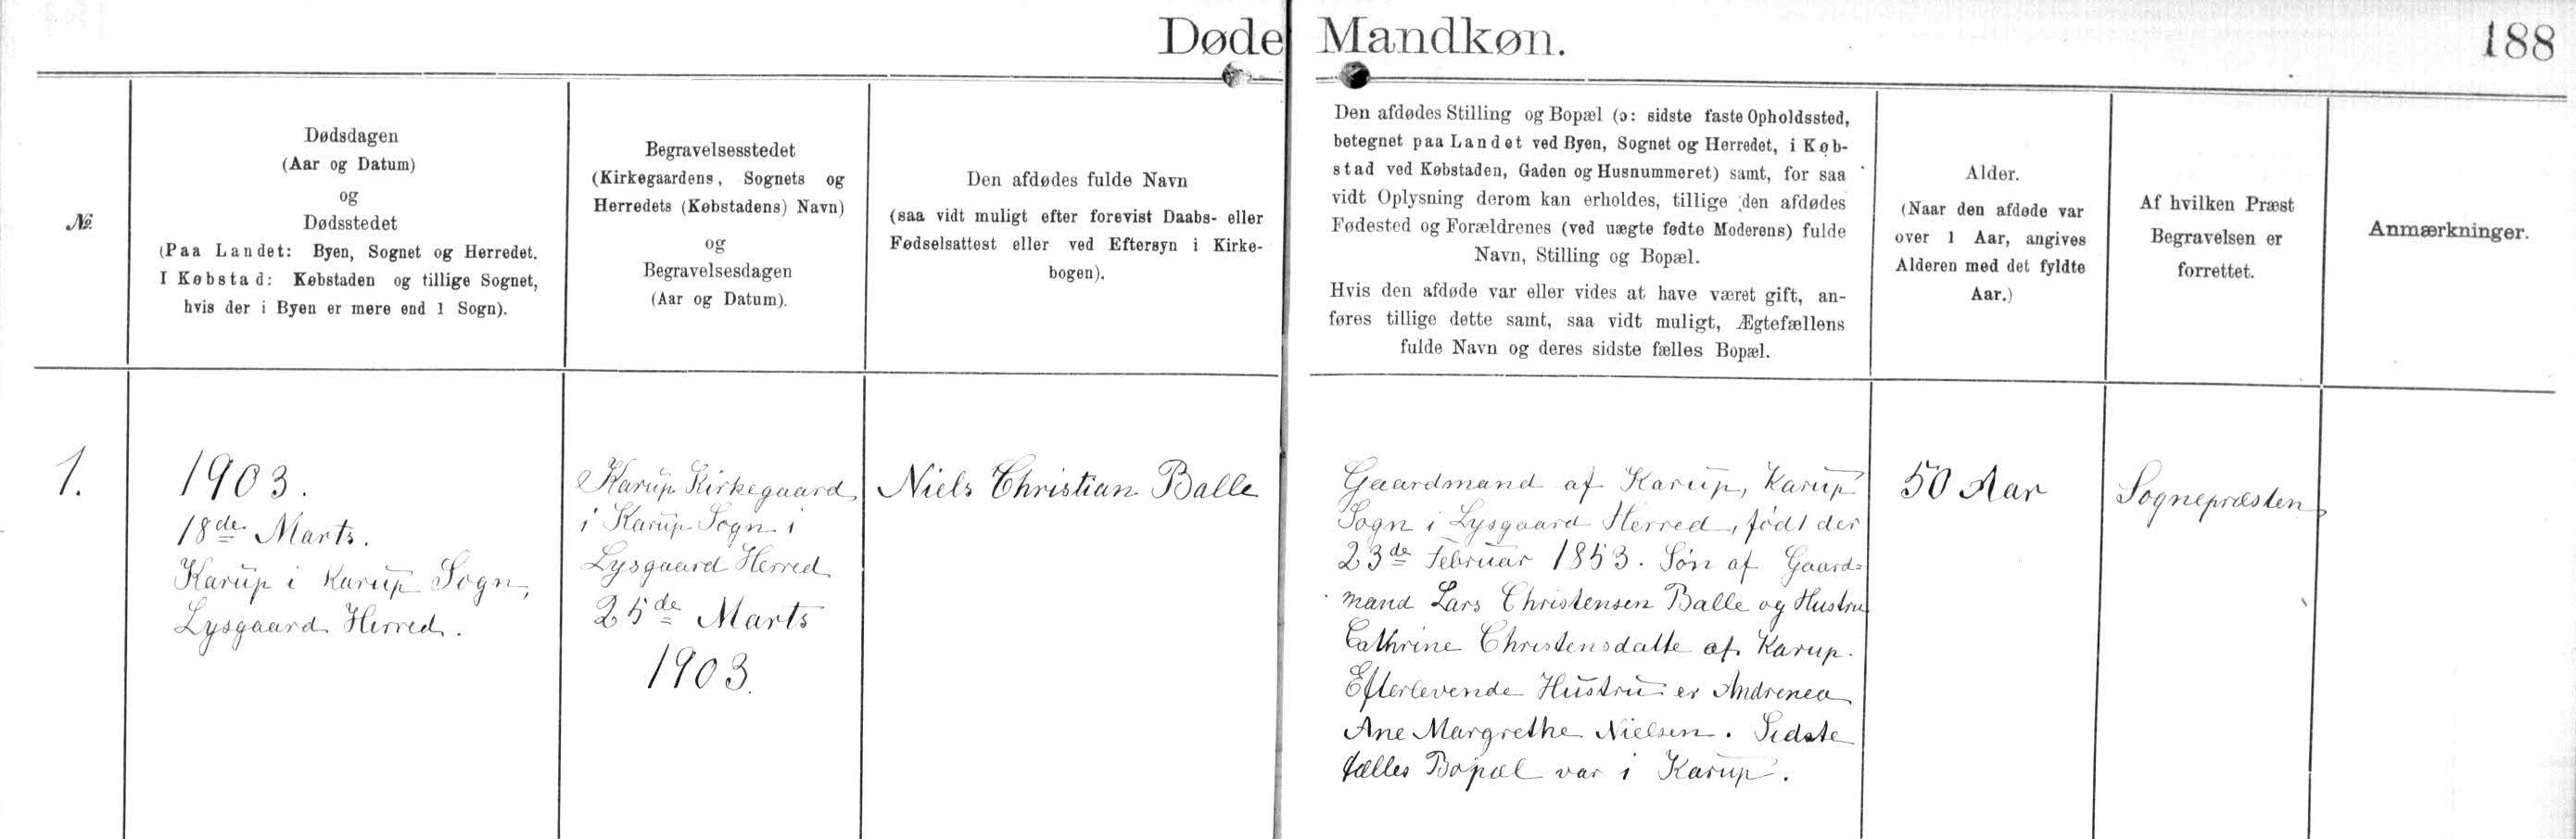 Døde Mandkøn.
188
№
Dødsdagen
(Aar og Datum)
og
Dødsstedet
(Paa Landet: Byen, Sognet og Herredet.
I Købstad: Købstaden og tillige Sognet,
hvis der i Byen er mere end 1 Sogn).
Begravelsesstedet
(Kirkegaardens, Sognets og
Herredets (Købstadens) Navn)
og
Begravelsesdagen
(Aar og Datum).
Den afdødes fulde Navn
(saa vidt muligt efter forevist Daabs- eller
Fødselsattest eller ved Eftersyn i Kirke-
bogen).
Den afdødes Stilling og Bopæl (ɔ: sidste faste Opholdssted,
betegnet paa Landet ved Byen, Sognet og Herredet, i Køb-
stad ved Købstaden, Gaden og Husnummeret) samt, for saa
vidt Oplysning derom kan erholdes, tillige den afdødes
Fødested og Forældrenes (ved uægte fødte Moderens) fulde
Navn, Stilling og Bopæl.
Hvis den afdøde var eller vides at have været gift, an-
føres tillige dette samt, saa vidt muligt, Ægtefællens
fulde Navn og deres sidste fælles Bopæl.
Alder.
(Naar den afdøde var
over 1 Aar, angives
Alderen med det fyldte
Aar.)
Af hvilken Præst
Begravelsen er
forrettet.
Anmærkninger.
1.
1903.
18de Marts.
Karup i Karup Sogn,
Lysgaard Herred.
Karup Kirkegaard
i Karup Sogn i
Lysgaard Herred
25de Marts
1903.
Niels Christian Balle
Gaardmand af Karup, Karup
Sogn i Lysgaard Herred, født der
23de Februar 1853. Søn af Gaard=
mand Lars Christensen Balle og Hustru
Cathrine Christensdatte af Karup.
Efterlevende Hustru er Andrenea
Ane Margrethe Nielsen. Sidste
fælles Bopæl var i Karup.
50 Aar
Sognepræsten